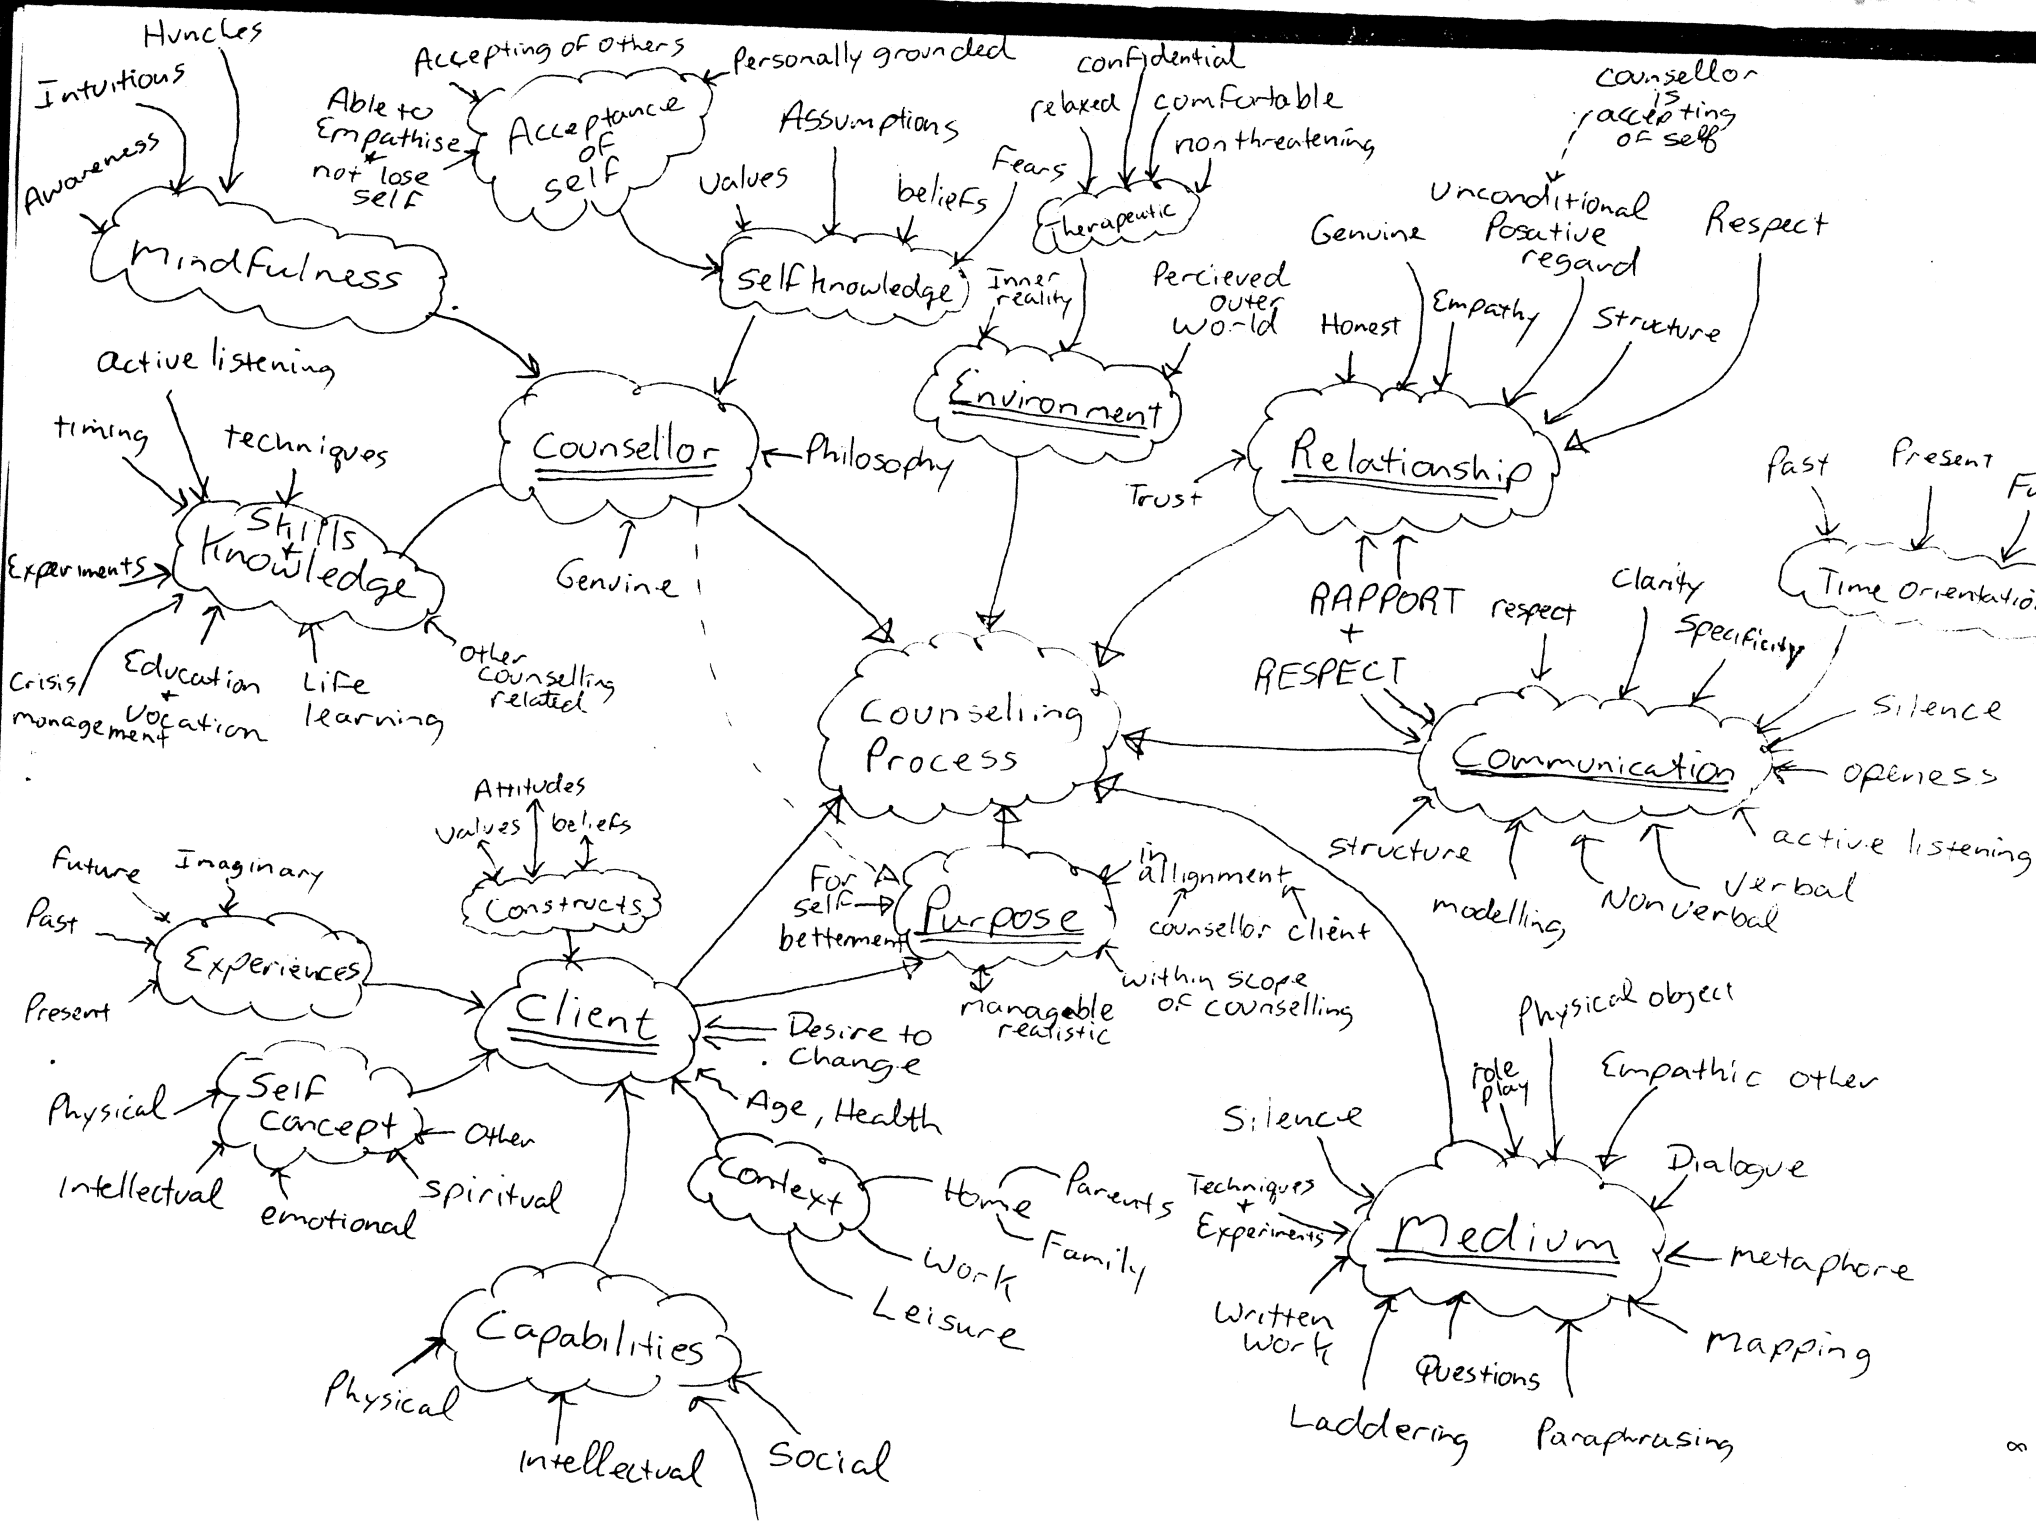 Hunches
Intuitious
Awareness
Mindfulness
Accepting of others
Personally grounded
Able to
Empathise
+
not lose
self
Acceptance
of
self
Assumptions
values
beliefs
Fears
self knowledge
confidential
relaxed
comfortable
nonthreatening
therapeutic
Inner
reality
Percieved
outer
world
Environment
counsellor
is
accepting
of self
unconditional
Posative
regard
Genuine
Respect
Honest
Empathy
Structure
Trust
Relationship
RAPPORT
+
RESPECT
active listening
timing
techniques
Skills
+
Knowledge
Experiments
Crisis
management
Education
+
vocation
Life
learning
other
counselling
related
Counsellor
Philosophy
Genuine
Past
Present
Fu
Time orientatio
respect
Clarity
Specificity
Silence
openess
active listening
Verbal
Nonverbal
modelling
structure
Communication
Counselling
Process
Attitudes
values
beliefs
Constructs
Future
Imaginary
Past
Present
Experiences
Client
For
self
betterment
Purpose
in
allignment
counsellor client
within scope
of counselling
manageable
realistic
Desire to
change
Age, Health
Self
concept
Physical
Intellectual
emotional
spiritual
Other
Context
Home
Parents
Family
Work
Leisure
Capabilities
Physical
Intellectual
Social
Physical object
role
play
Empathic other
Silence
Dialogue
Techniques
+
Experiments
Medium
metaphore
Written
work
Mapping
Questions
Laddering
Paraphrasing